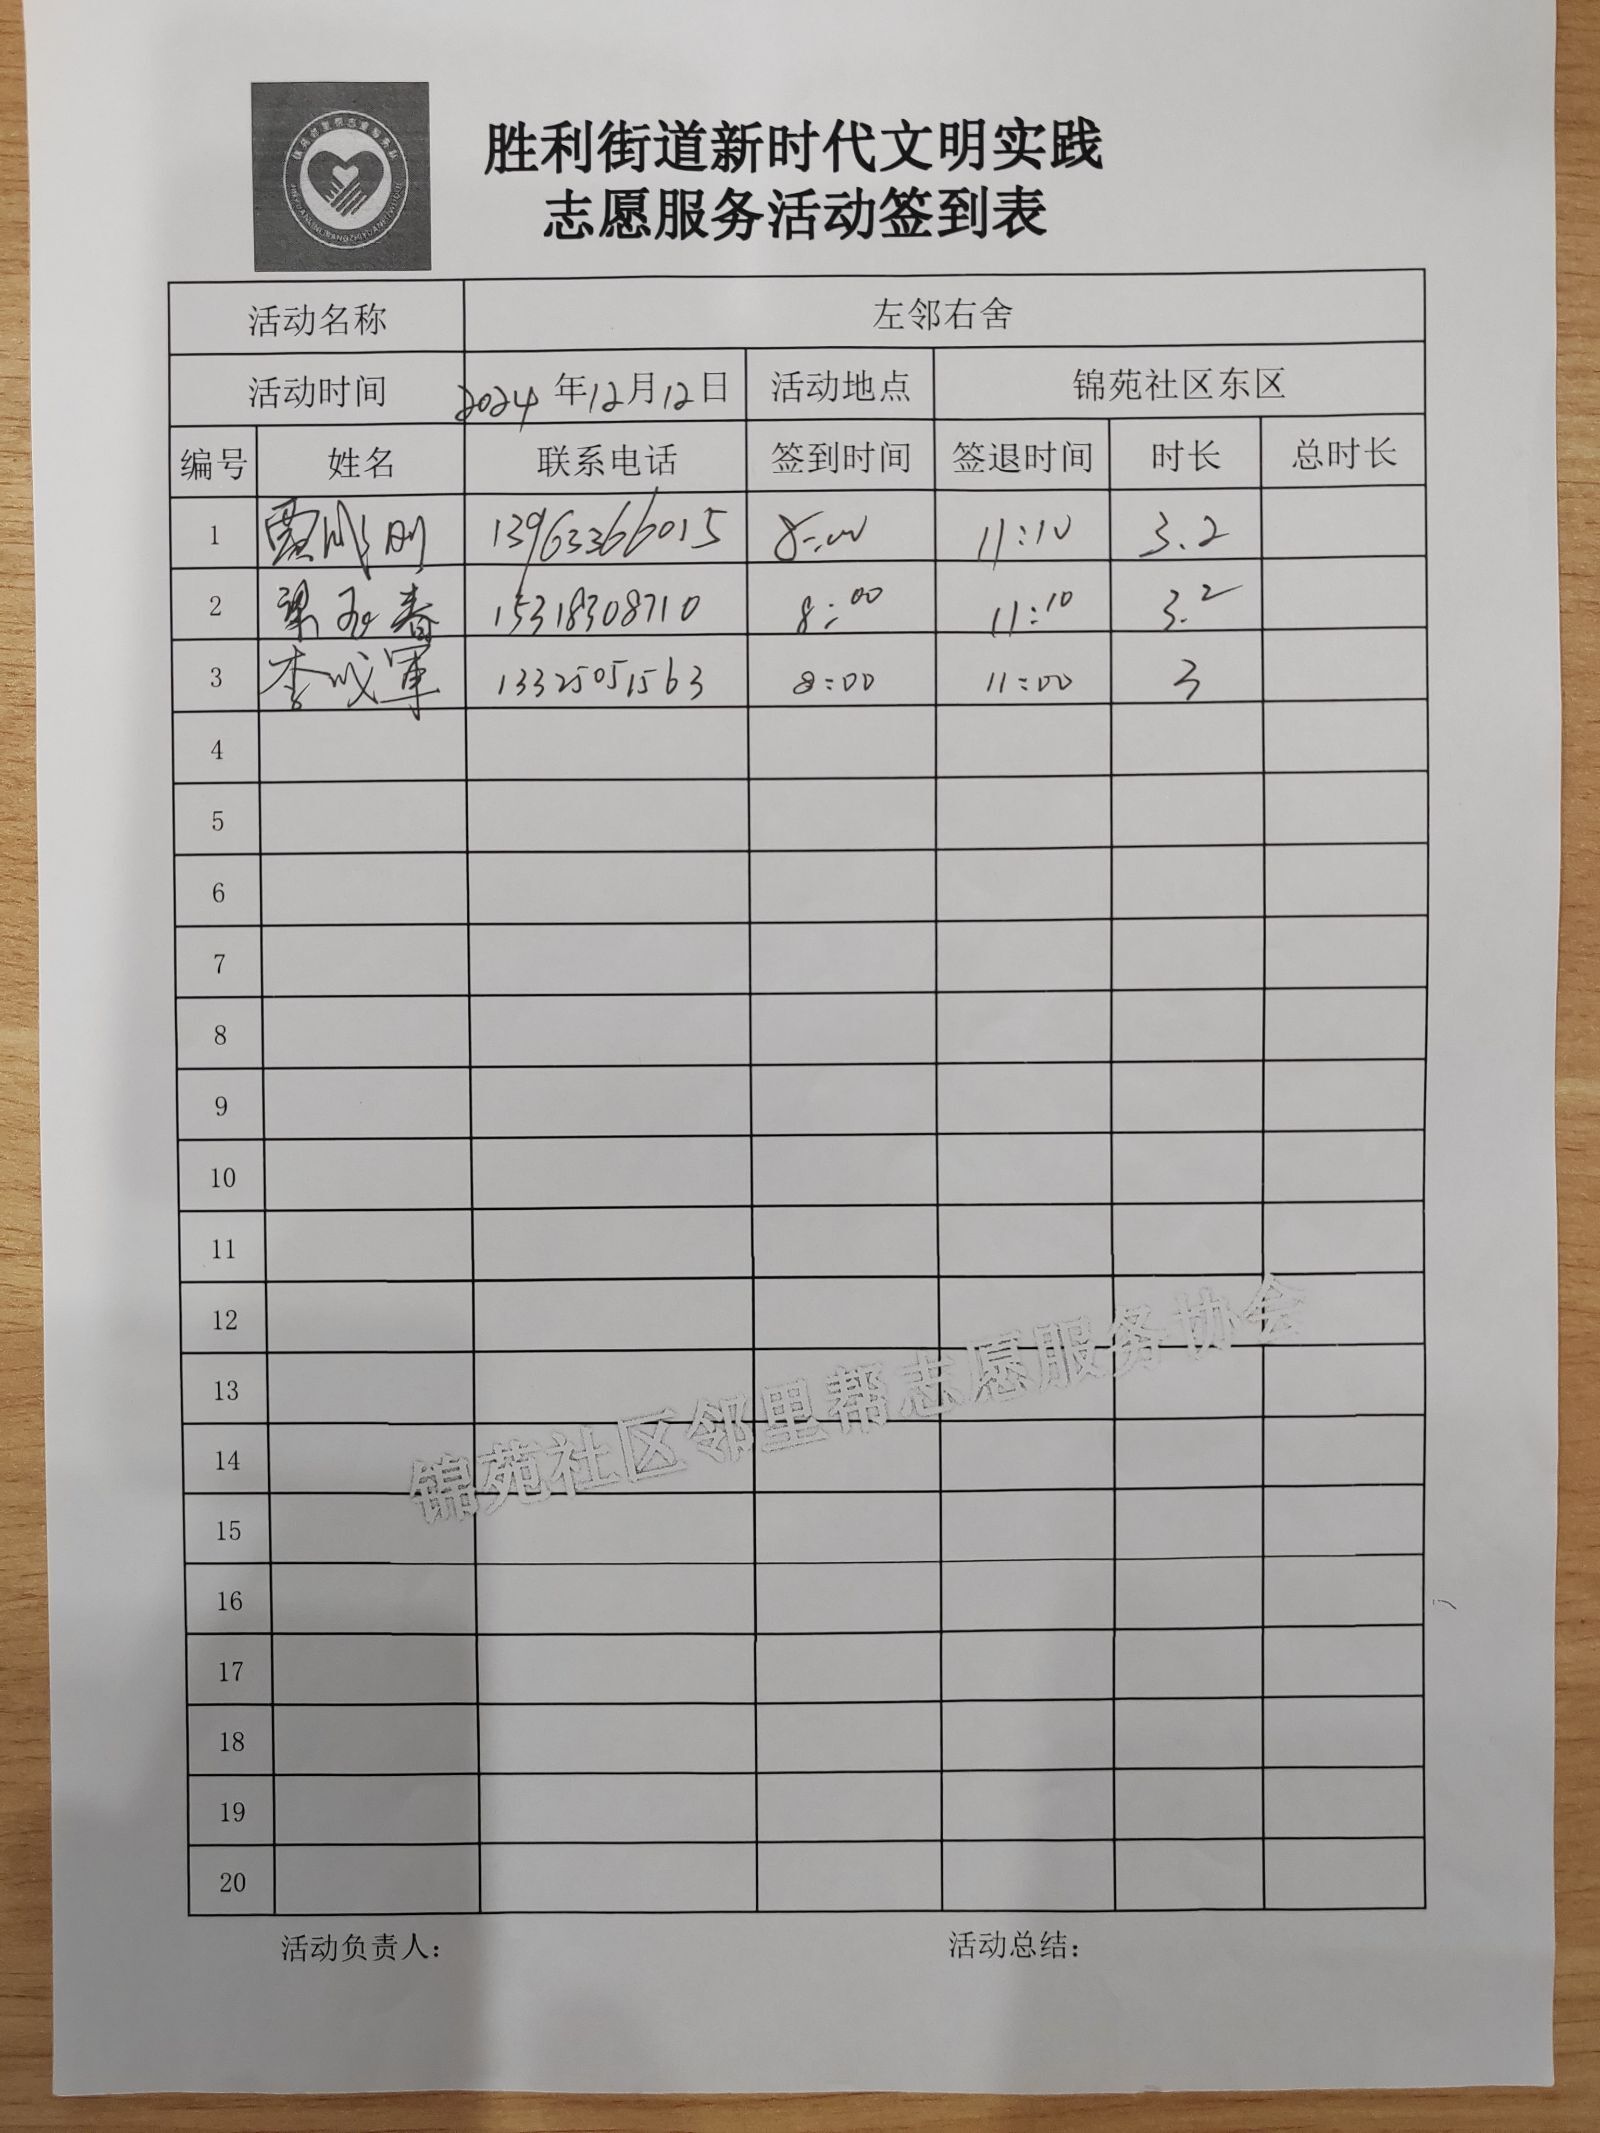 胜利街道新时代文明实践
志愿服务活动签到表
活动名称 左邻右舍
活动时间 2024年12月12日 活动地点 锦苑社区东区
编号 姓名 联系电话 签到时间 签退时间 时长 总时长
1 贾 刚 13963366015 8:00 11:10 3.2
2 梁 春 15318308710 8:00 11:10 3.2
3 李成军 13325051563 8:00 11:00 3
4
5
6
7
8
9
10
11
12
13
14
15
16
17
18
19
20
锦苑社区邻里帮志愿服务协会
活动负责人： 活动总结：